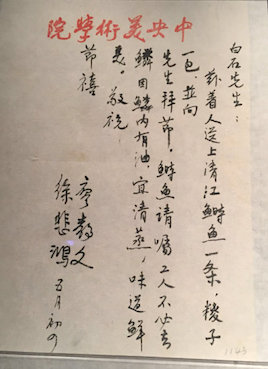 中央美術學院
白石先生:
兹着人送上清江鲥鱼一条,糉子
一包,並向
先生拜節。鲥鱼請嘱工人不必去
鳞因鳞内有油,宜清蒸,味道鮮
美。敬祝
節禧
廖静文
徐悲鴻 五月初四
1143